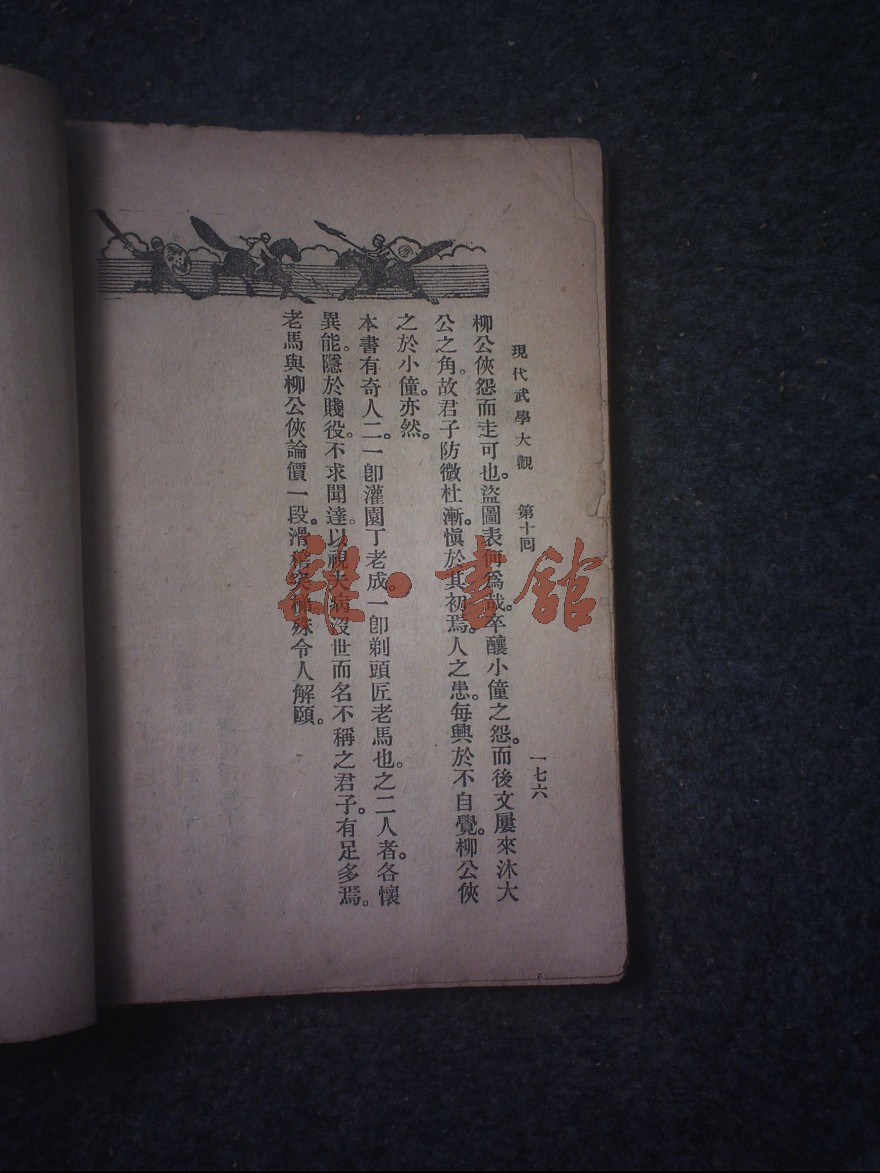 現代武學大觀 第十回 一七六
柳公俠怨而走可也。盜圖表何為哉。卒釀小僮之怨。而後文屢來沐大
公之角。故君子防微杜漸。慎於其初焉。人之患。每興於不自覺。柳公俠
之於小僮。亦然。
本書有奇人二。一卽灌園丁老成。一卽剃頭匠老馬也。之二人者。各懷
異能。隱於賤役。不求聞達。以視夫病沒世而名不稱之君子。有足多焉。
老馬與柳公俠論價一段。滑稽突梯。殊令人解頤。
雜·書館